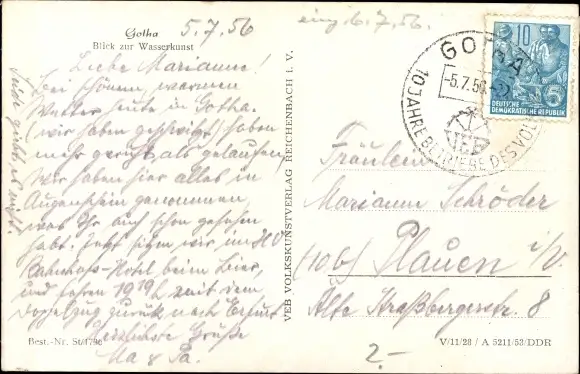 Gotha
5.7.56
Blick zur Wasserkunst
eing. 6.7.56.
Liebe Marianne!
Bei schönem, warmen
Wetter heute in Gotha.
(wir haben geschwitzt) haben
mehr gerutscht als gelaufen,
Wir haben hier alles in
Augenschein genommen,
was Ihr auch schon gesehen
habt. Jetzt sitzen wir, im HO
Bahnhofs-Hotel beim Bier,
und fahren 19 19h mit dem
Doppelzug zurück nach Erfurt
Herzlichste Grüße
Ma & Pa.
gibt es nicht.
Best.-Nr. St/479c
VEB VOLKSKUNSTVERLAG REICHENBACH I. V.
GOTHA 2
-5.7.56
10 JAHRE BETRIEBE DES VOL
VEB
10
5
DEUTSCHE
DEMOKRATISCHE REPUBLIK
Fräulein
Mariann Schröder
(10b) Plauen i/V.
Alte Straßbergerstr. 8
2.-
V/11/28 / A 5211/53/DDR